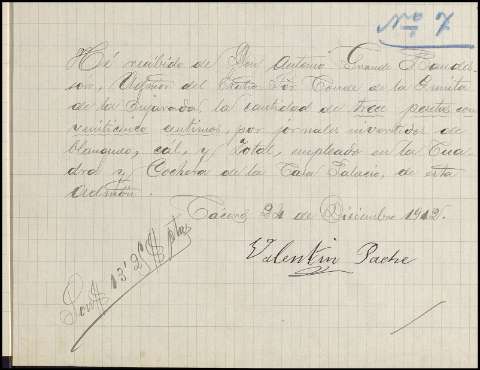 Nº 7
Hé recibido de Don Antonio Grande
Admón del Exmo Sor Conde de la
de la Enjarada, la cantidad de trece pesetas con
veinticinco centimos, por jornales invertidos de
blanqueo, cal, y Zotal, empleado en la Cua-
dra y Cochera de la Casa Palacio, de esta
Admón.
Cáceres 24 de Diciembre 1912.
Valentin Pache
Son $ 13'25 $ ptas